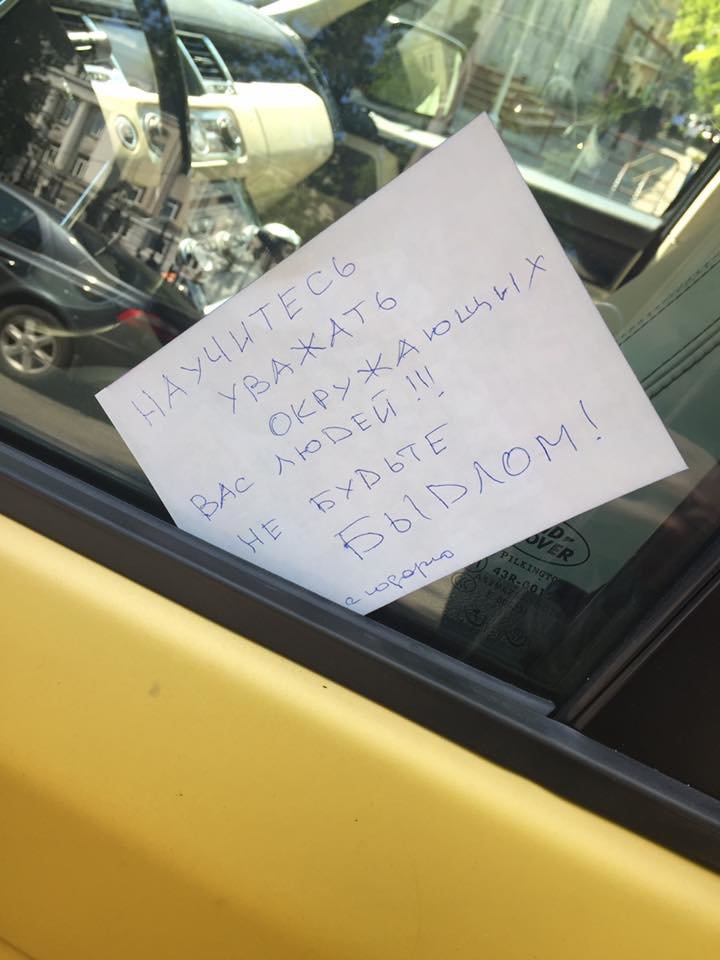 НАУЧИТЕСЬ
УВАЖАТЬ
ОКРУЖАЮЩЫХ
ВАС ЛЮДЕЙ!!!
НЕ БУДЬТЕ
БЫДЛОМ!
OVER
PILKINGTON
43R-001